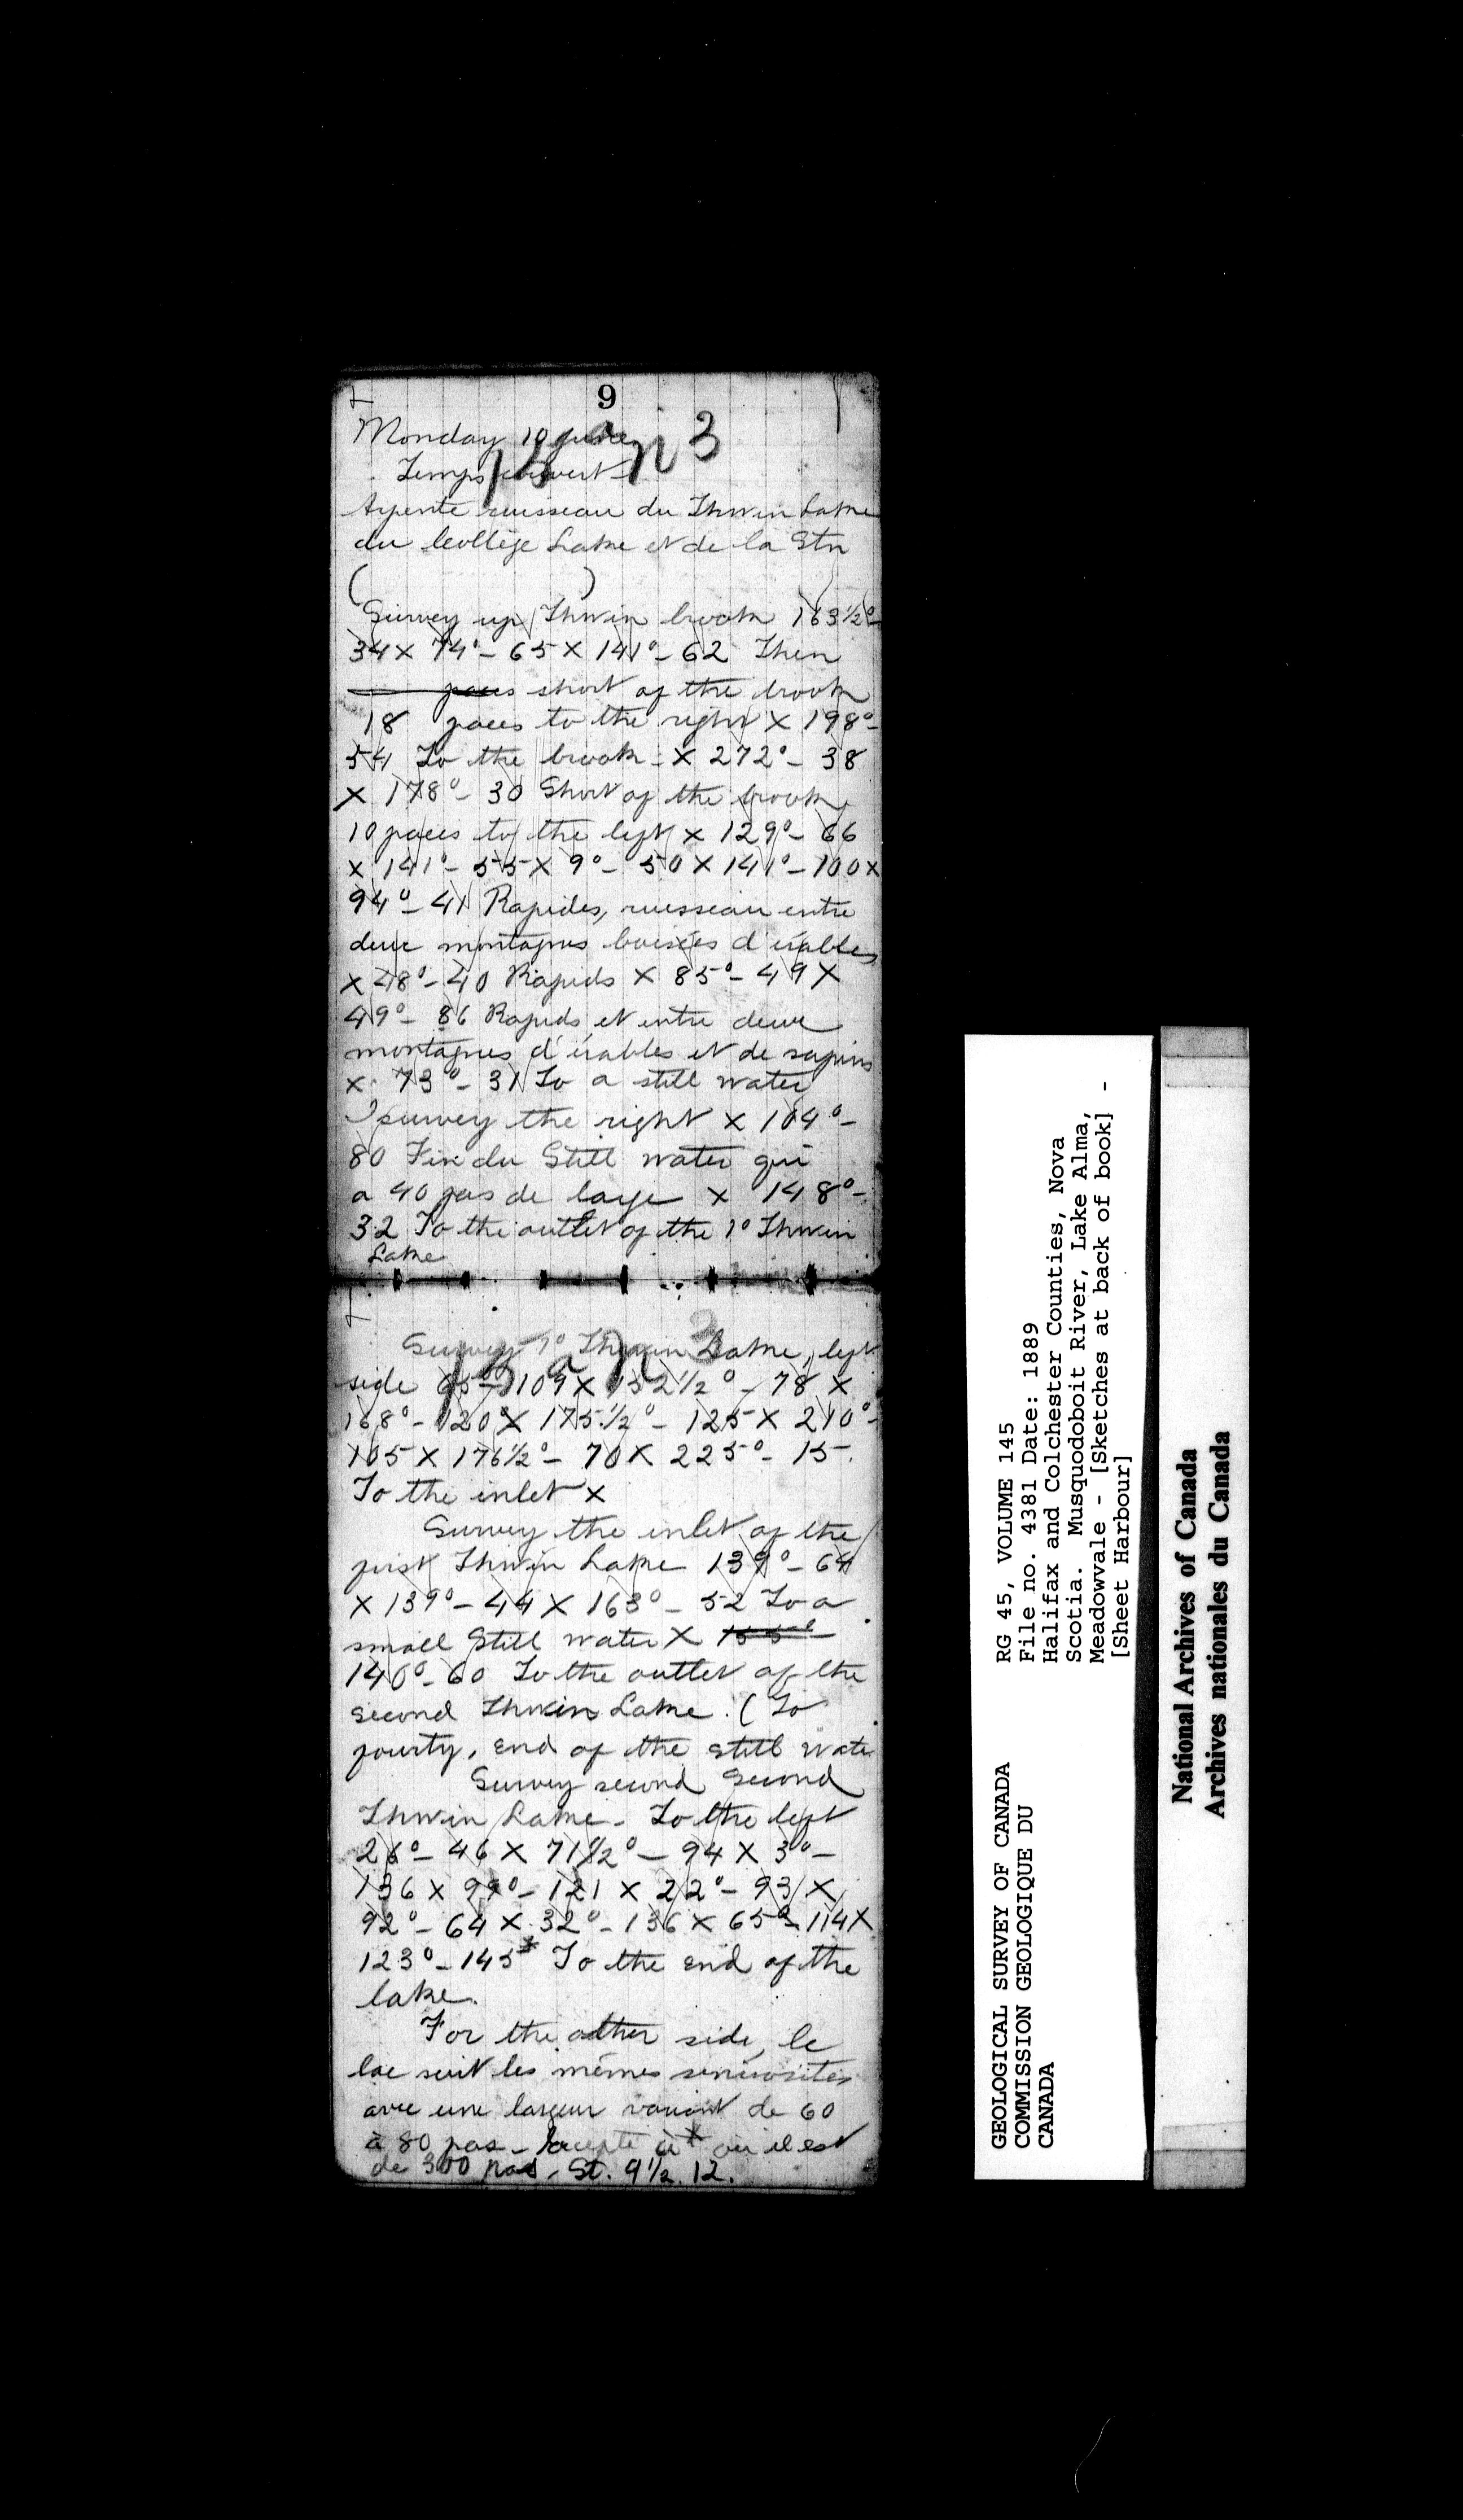 9
Monday 10 June
Plan 3
Temps couvert
Arpente ruisseau du Thwin Lake
du College Lake et de la Stn
( )
Survey up Thwin brook 163½°-
34 X 74°- 65 X 141°- 62 Then
paces short of the brook
18 paces to the right X 198°-
54 To the brook - X 272°- 38
X 178°- 30 Short of the brook
10 paces to the left X 129°- 66
X 141°- 55 X 9°- 50 X 141°- 100 X
94°- 41 Rapides, ruisseau entre
deux montagnes boisées d'érables
X 48°- 40 Rapids X 85°- 49 X
49°- 86 Rapids et entre deux
montagnes d'érables et de sapins
X 73°- 31 To a still water
I survey the right X 104°-
80 Fin du Still water qui
a 40 pas de large X 148°-
32 To the outlet of the 1° Thwin
Lake
Plan 3
Survey 1° Thwin Lake, left
side 65°- 109 X 132½°- 78 X
168°- 120 X 175½°- 125 X 210°-
105 X 176½°- 70 X 225°- 15
To the inlet X
Survey the inlet of the
first Thwin Lake 139°- 64
X 139°- 44 X 163°- 52 To a
small Still water X 155°-
140°- 60 To the outlet of the
second Thwin Lake. (To
fourty, end of the still water
Survey second Second
Thwin Lake - To the left
26°- 46 X 71½°- 94 X 3°-
136 X 99°- 121 X 22°- 93 X
92°- 64 X 32°- 136 X 65°- 114 X
123°- 145* To the end of the
lake.
For the other side, le
lac suit les mêmes sinuosites
avec une largeur variant de 60
à 80 pas - Excepté à * ou il est
de 300 pas - St. 9½. 12.
GEOLOGICAL SURVEY OF CANADA
COMMISSION GEOLOGIQUE DU
CANADA
RG 45, VOLUME 145
File no. 4381 Date: 1889
Halifax and Colchester Counties, Nova
Scotia. Musquodoboit River, Lake Alma,
Meadowvale - [Sketches at back of book] -
[Sheet Harbour]
National Archives of Canada
Archives nationales du Canada